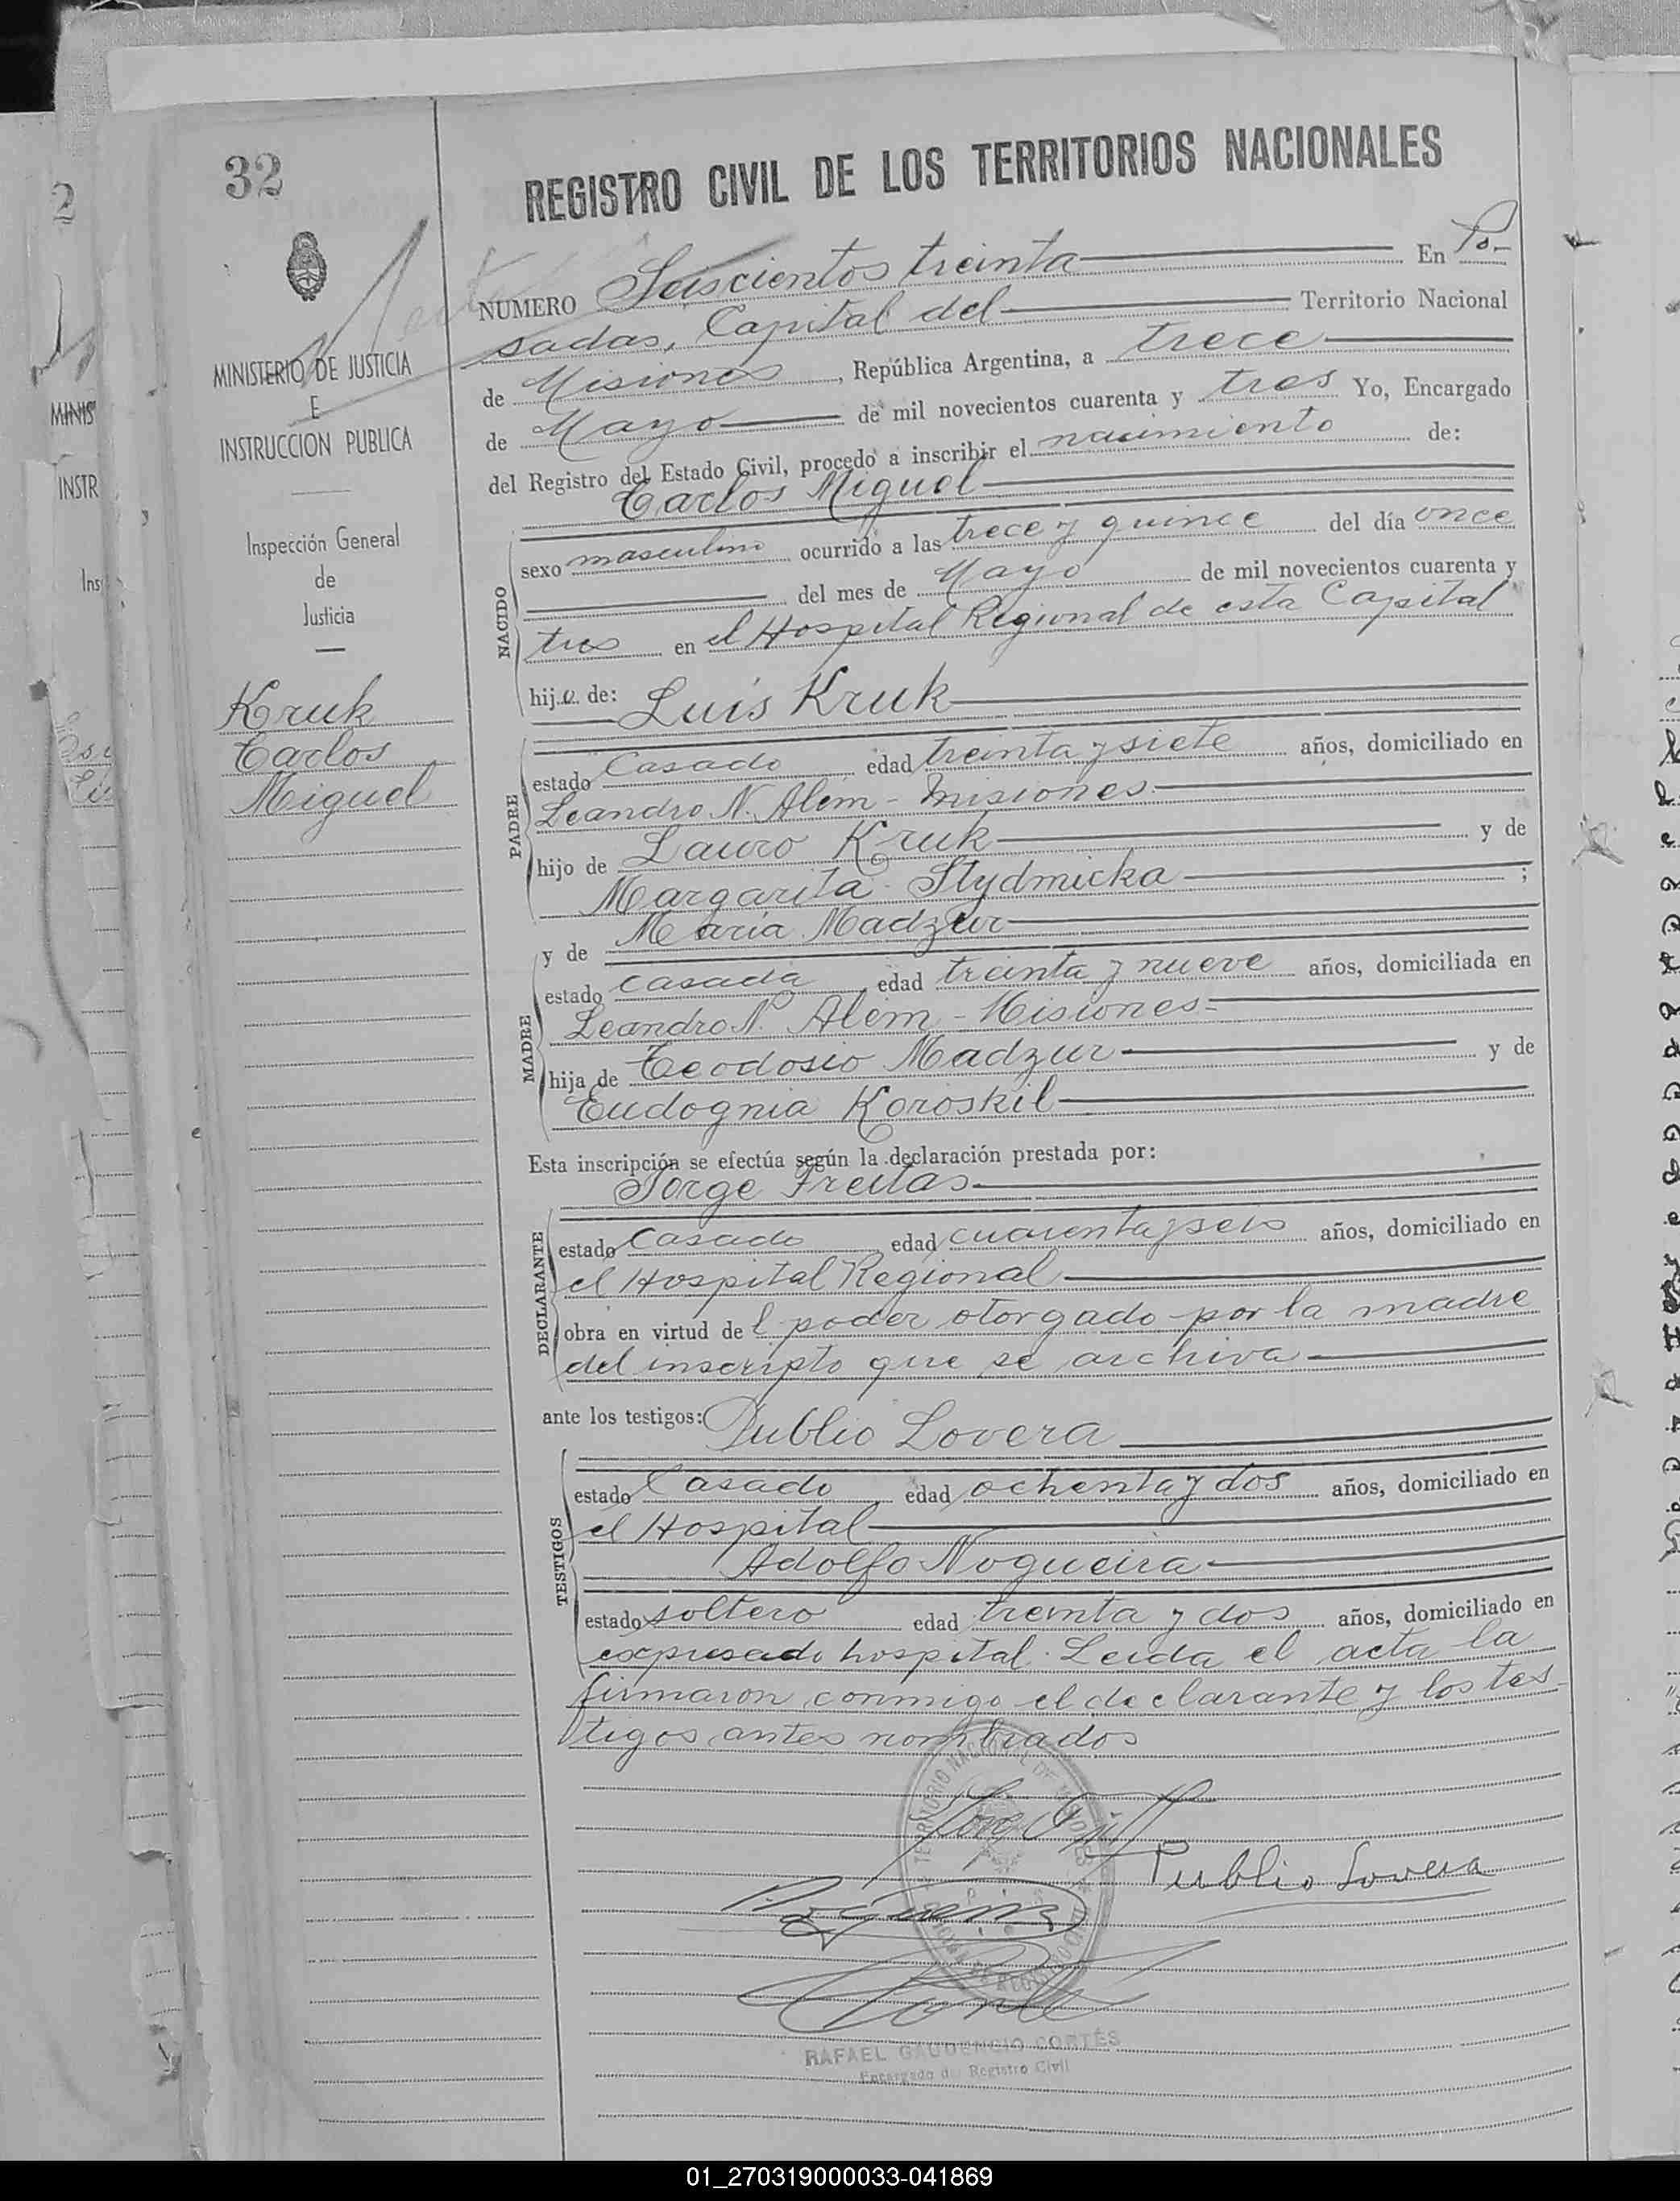 32
REGISTRO CIVIL DE LOS TERRITORIOS NACIONALES
MINISTERIO DE JUSTICIA
E
INSTRUCCION PUBLICA
Inspección General
de
Justicia
Kruk
Carlos
Miguel
NUMERO Seiscientos treinta En Po-
sadas, Capital del Territorio Nacional
de Misiones, República Argentina, a trece
de Mayo de mil novecientos cuarenta y tres Yo, Encargado
del Registro del Estado Civil, procedo a inscribir el nacimiento de:
Carlos Miguel
NACIDO
sexo masculino ocurrido a las trece y quince del día once
del mes de Mayo de mil novecientos cuarenta y
tres en el Hospital Regional de esta Capital
hijo de: Luis Kruk
PADRE
estado Casado edad treinta y siete años, domiciliado en
Leandro N. Alem - Misiones
hijo de Lauro Kruk y de
Margarita Stydmicka ;
y de Maria Madzur
MADRE
estado casada edad treinta y nueve años, domiciliada en
Leandro N. Alem - Misiones
hija de Teodosio Madzur y de
Eudognia Koroskil
Esta inscripción se efectúa según la declaración prestada por:
Jorge Freitas
DECLARANTE
estado Casado edad cuarenta y seis años, domiciliado en
el Hospital Regional
obra en virtud del poder otorgado por la madre
del inscripto que se archiva
ante los testigos: Publio Lovera
TESTIGOS
estado Casado edad ochenta y dos años, domiciliado en
el Hospital
Adolfo Nogueira
estado soltero edad treinta y dos años, domiciliado en
expresado hospital. Leida el acta la
firmaron conmigo el declarante y los tes-
tigos antes nombrados
Publio Lovera
Nogueira
RAFAEL GAUDENCIO CORTÉS
Encargado del Registro Civil
01_270319000033-041869